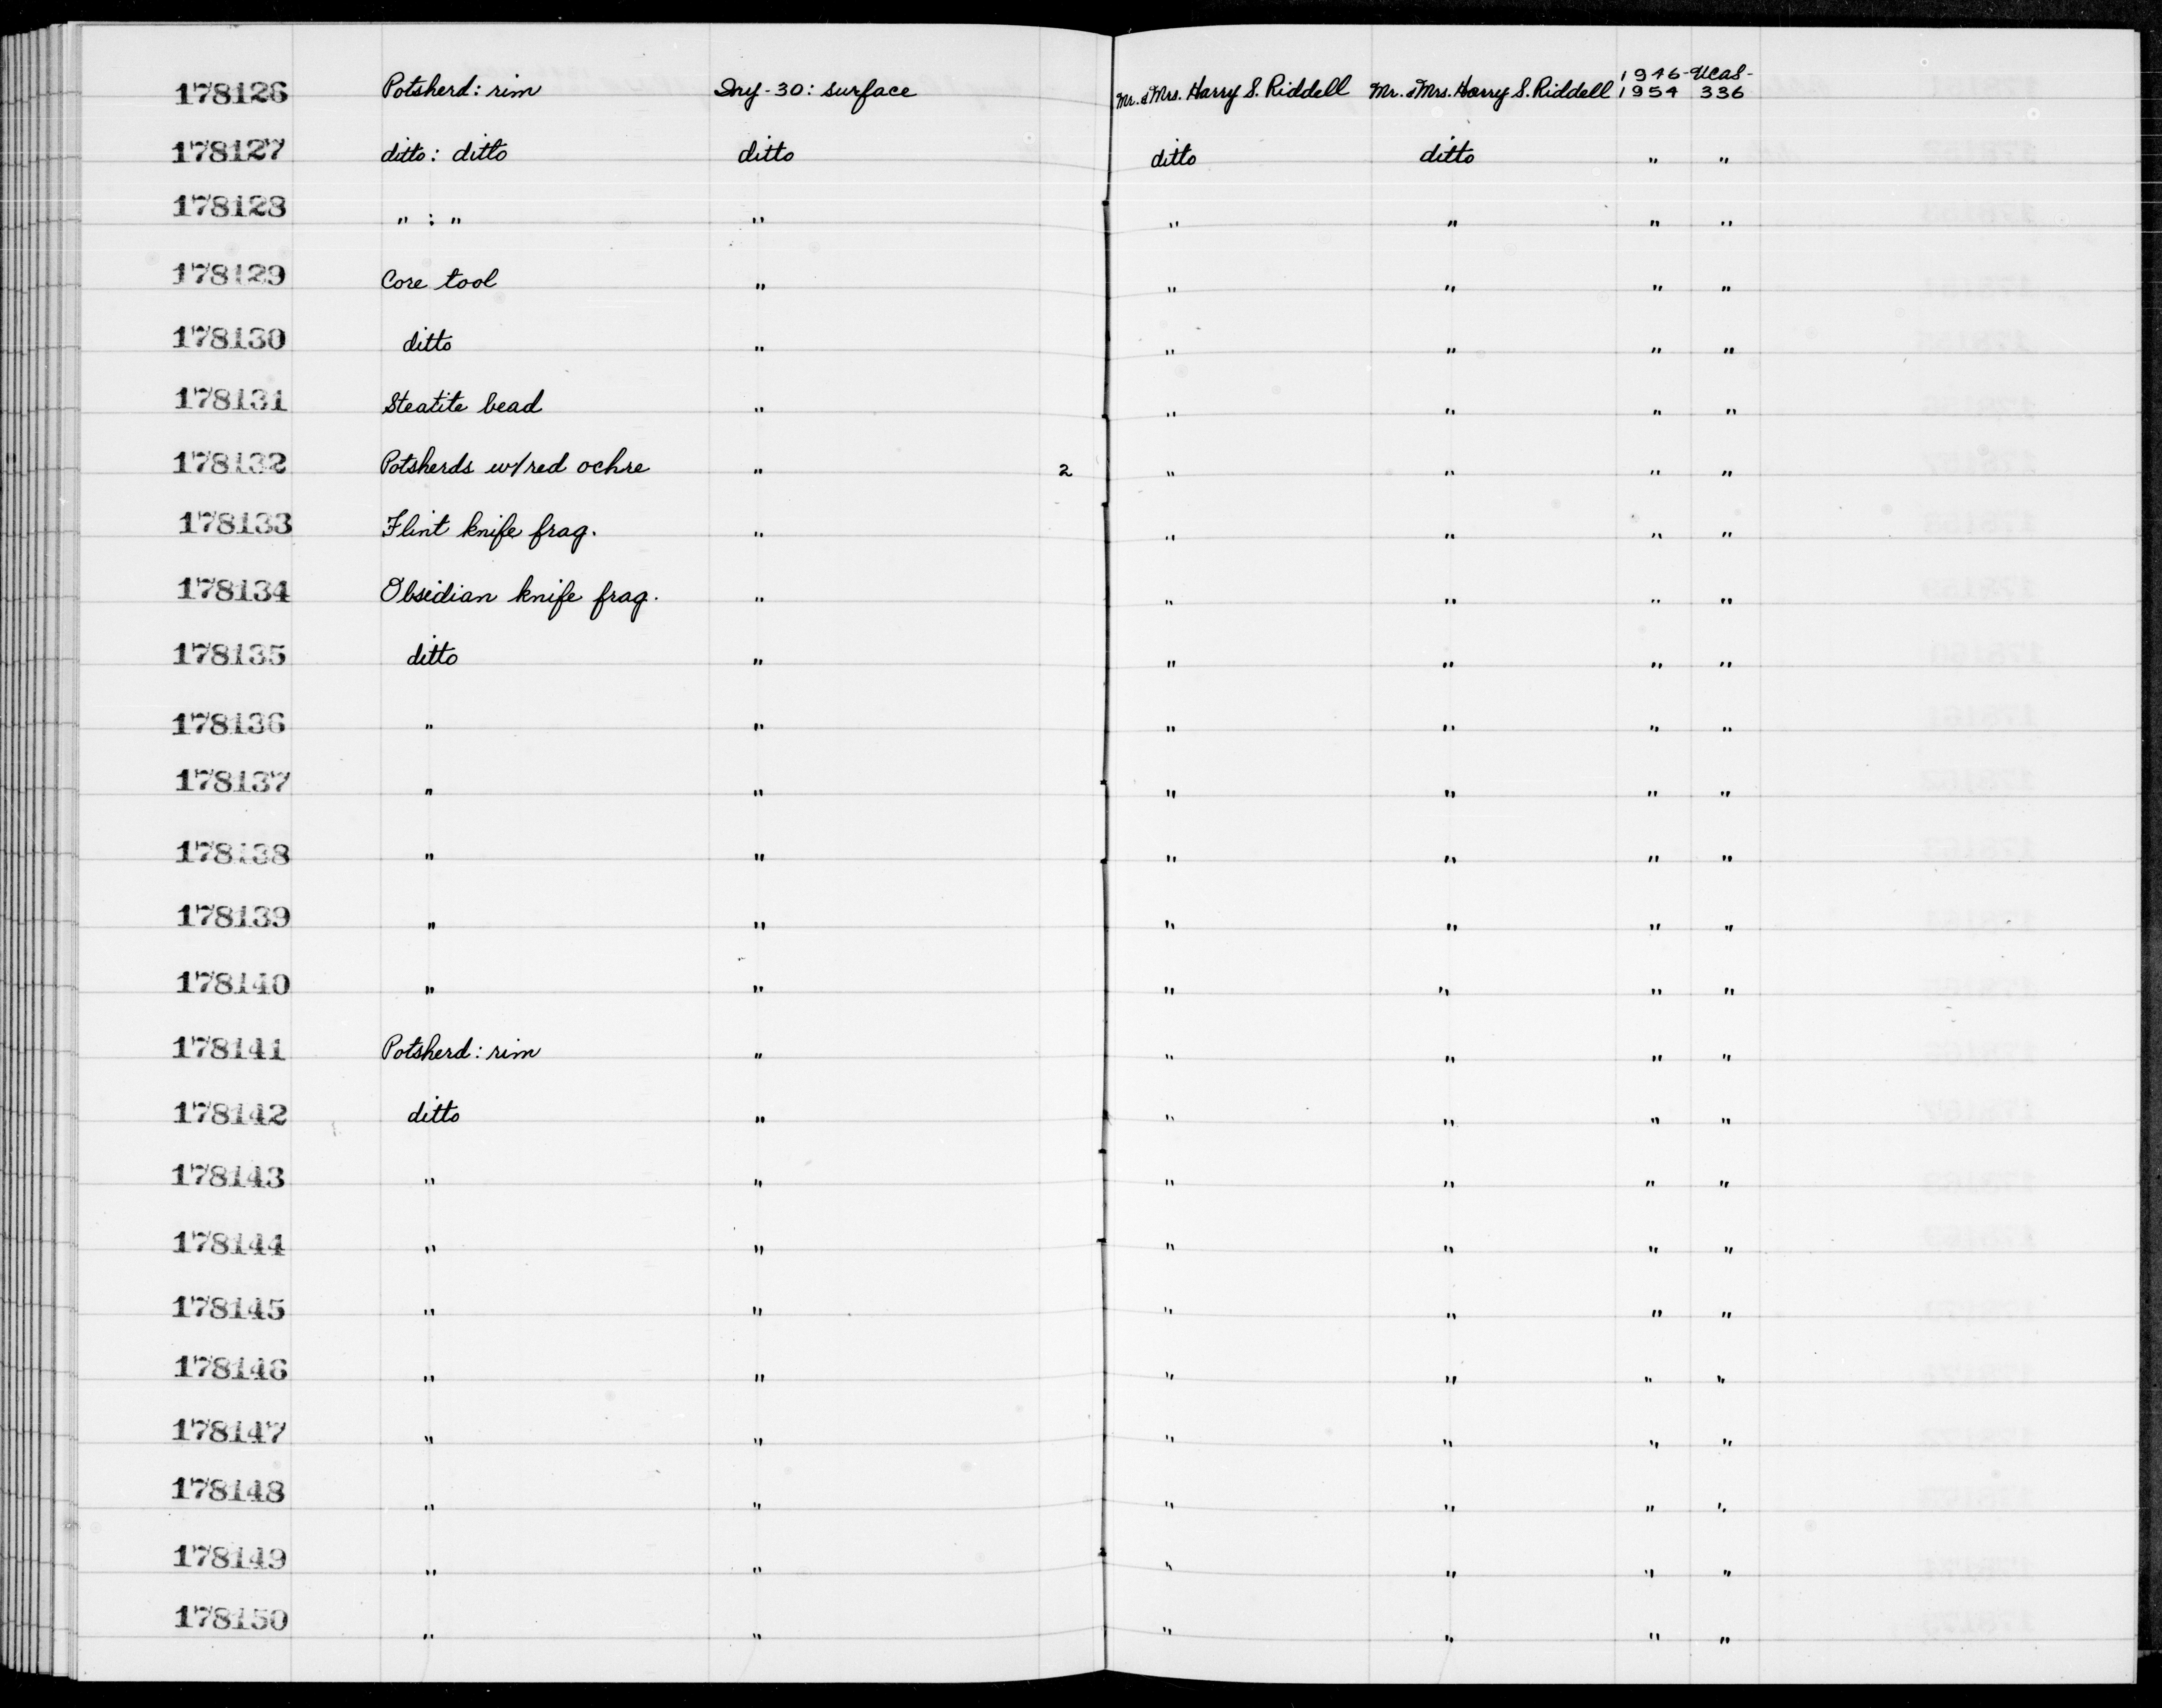 178126 Potsherd: rim Iny-30: surface Mr. & Mrs. Harry S. Riddell Mr. & Mrs. Harry S. Riddell 1946-1954 UCAS-336
178127 ditto: ditto ditto ditto ditto " "
178128 " : " " " " " "
178129 Core tool " " " " "
178130 ditto " " " " "
178131 Steatite bead " " " " "
178132 Potsherds w/red ochre " 2 " " " "
178133 Flint knife frag. " " " " "
178134 Obsidian knife frag. " " " " "
178135 ditto " " " " "
178136 " " " " " "
178137 " " " " " "
178138 " " " " " "
178139 " " " " " "
178140 " " " " " "
178141 Potsherd: rim " " " " "
178142 ditto " " " " "
178143 " " " " " "
178144 " " " " " "
178145 " " " " " "
178146 " " " " " "
178147 " " " " " "
178148 " " " " " "
178149 " " " " " "
178150 " " " " " "